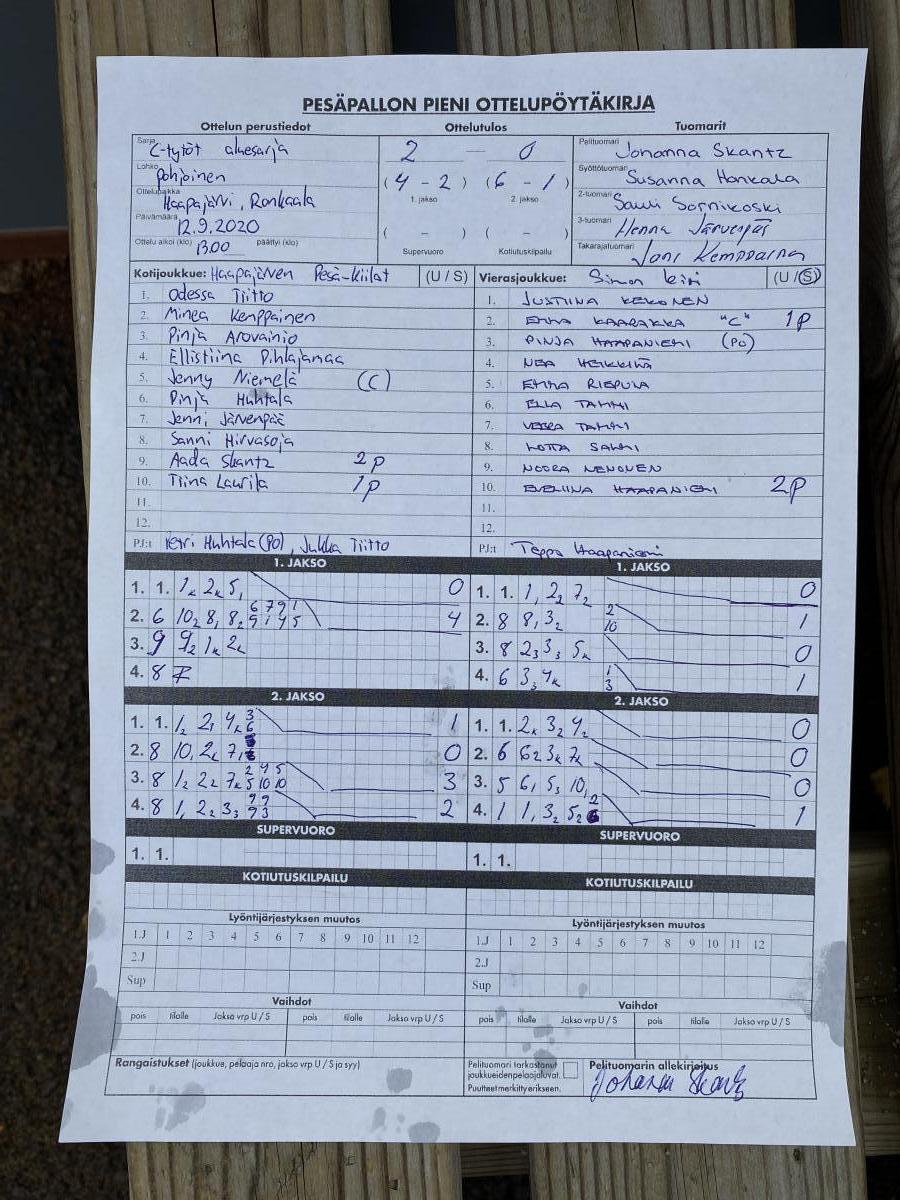 PESÄPALLON PIENI OTTELUPÖYTÄKIRJA
Ottelun perustiedot Ottelutulos Tuomarit
Sarja C-tytöt aluesarja
Lohko Pohjoinen
Ottelupaikka Haapajärvi, Ronkaala
Päivämäärä 12.9.2020
Ottelu alkoi (klo) 13.00 päättyi (klo)
2 — 0
(4 - 2) (6 - 1)
1. jakso 2. jakso
( - ) ( - )
Supervuoro Kotiutuskilpailu
Pelituomari Johanna Skantz
Syöttötuomari Susanna Honkala
2-tuomari Sauli Sornikoski
3-tuomari Henna Järvenpää
Takarajatuomari Joni Kemppainen
Kotijoukkue: Haapajärven Pesä-Kiilat (U / S)
1. Odessa Tiitto
2. Minea Kemppainen
3. Pinja Arovainio
4. Ellistiina Pihlajamaa
5. Jenny Niemelä (C)
6. Pinja Huhtala
7. Jenni Järvenpää
8. Sanni Hirvasoja
9. Aada Skantz 2p
10. Tiina Laurila 1p
11.
12.
PJ:t Petri Huhtala (PO), Jukka Tiitto
Vierasjoukkue: Simon Kiri (U / S)
1. JUSTIINA KEKONEN
2. EMMA KAARAKKA "C" 1P
3. PINJA HAAPANIEMI (PO)
4. NEA HEIKKILÄ
5. EMMA RIEPULA
6. ELLA TAMMI
7. VEERA TAMMI
8. LOTTA SALMI
9. NOORA NENONEN
10. EVELIINA HAAPANIEMI 2P
11.
12.
PJ:t Teppo Haapaniemi
1. JAKSO
1. 1. 1k 2k 5, 0
2. 6 10₂ 8, 8₂ 6 7 9 1 4
9 1 4 5
3. 9 9₂ 1k 2k
4. 8
1. JAKSO
1. 1. 1, 2₂ 7₂ 0
2. 8 8, 3₂ 2 1
10
3. 8 2₃ 3₃ 5k 0
4. 6 3₃ 4k 1 1
3
2. JAKSO
1. 1. 1₂ 2, 4k 3 1
6
2. 8 10, 2k 7, 0
3. 8 1₂ 2₂ 7k 2 4 5 3
5 10 10
4. 8 1, 2₂ 3₃ 7 9 2
9 3
2. JAKSO
1. 1. 2k 3₂ 4₂ 0
2. 6 6₂ 3k 7k 0
3. 5 6, 5₃ 10, 0
4. 1 1, 3₂ 5₂ 2 1
6
SUPERVUORO SUPERVUORO
1. 1. 1. 1.
KOTIUTUSKILPAILU KOTIUTUSKILPAILU
Lyöntijärjestyksen muutos Lyöntijärjestyksen muutos
1.J 1 2 3 4 5 6 7 8 9 10 11 12 1.J 1 2 3 4 5 6 7 8 9 10 11 12
2.J 2.J
Sup Sup
Vaihdot Vaihdot
pois tilalle Jakso vrp U / S pois tilalle Jakso vrp U / S pois tilalle Jakso vrp U / S pois tilalle Jakso vrp U / S
Rangaistukset (joukkue, pelaaja nro, jakso vrp U / S ja syy)
Pelituomari tarkastanut
joukkueiden pelaajaluvat.
Puutteet merkitty erikseen.
Pelituomarin allekirjoitus
Johanna Skantz